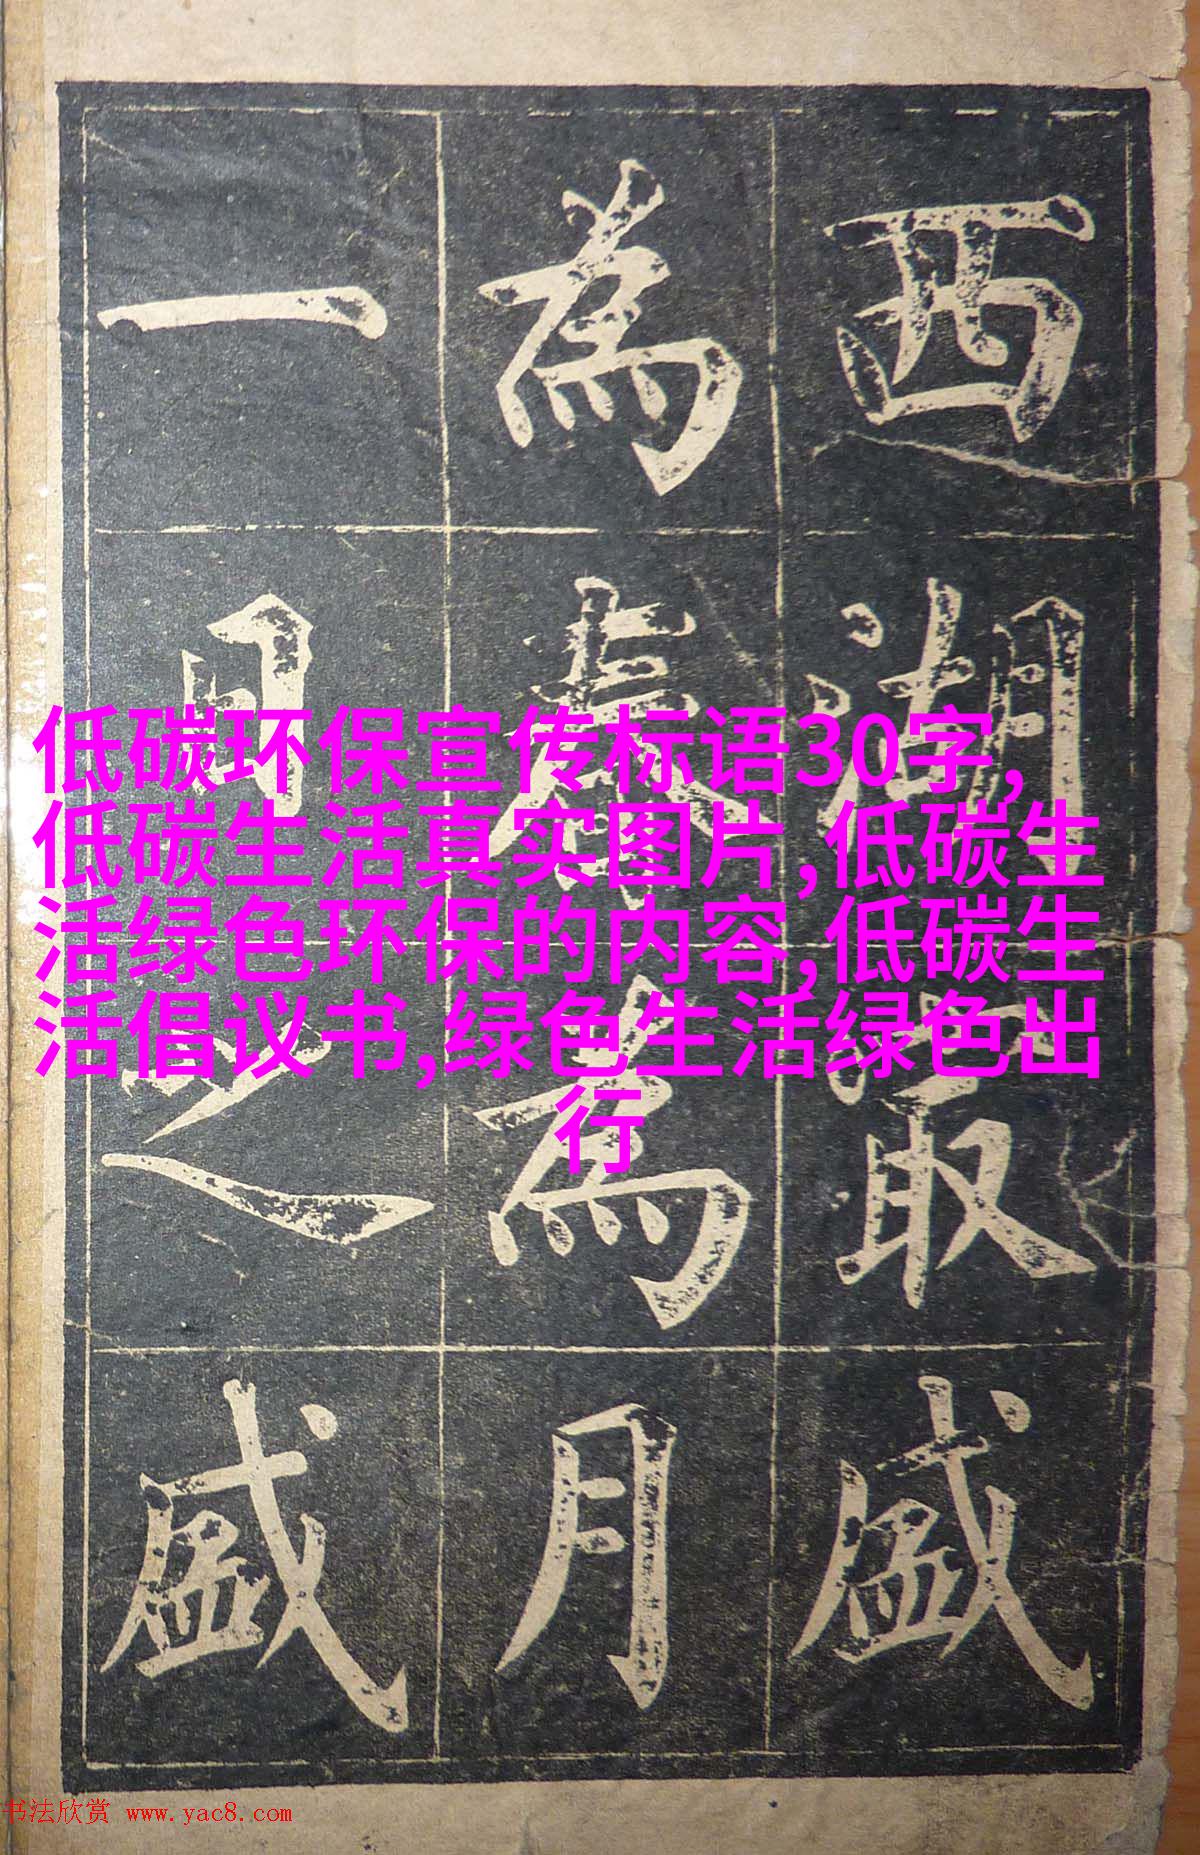 低碳环保宣传标语30字,
低碳生活真实图片,低碳生
活绿色环保的内容,低碳生
活倡议书,绿色生活绿色出
行
西湖最盛
為春為月
一日之盛
书法欣赏 www.yac8.com